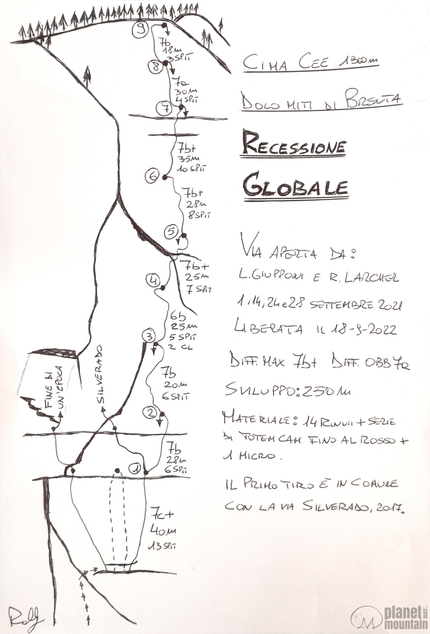 CIMA CEE 1300m
DOLOMITI DI BRENTA
RECESSIONE
GLOBALE
VIA APERTA DA:
L. GIUPPONI E R. LARCHER
1, 14, 24 e 28 SETTEMBRE 2021
LIBERATA IL 18-9-2022
DIFF. MAX 7b+ DIFF. OBB 7a
SVILUPPO: 250 m
MATERIALE: 14 RINVII + SERIE
DI TOTEM CAM FINO AL ROSSO +
1 MICRO.
IL PRIMO TIRO È IN COMUNE
CON LA VIA SILVERADO, 2017.
9
7b
18m
3 SPIT
8
7a
30m
4 SPIT
7
7b+
35m
10 SPIT
6
7b+
28m
8 SPIT
5
7b+
25m
7 SPIT
4
6b
25m
5 SPIT
2 CL
3
7b
20m
6 SPIT
2
7b
28m
6 SPIT
1
7c+
40m
13 SPIT
FINE DI
UN'EPOCA
SILVERADO
Rolly
planet
mountain